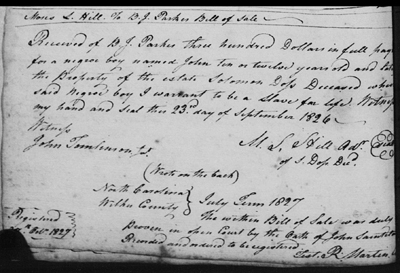 Mons S. Hill To D.J. Parker Bill of Sale
Received of D. J. Parker three hundred Dollars in full pay
for a negroe boy named John ten or twelve years old and
the Property of the estate Solomon Goss Deceased which
said Negroe boy I warrant to be a Slave for life Witness
my hand and seal this 23rd day of September 1826
Witness
M. S. Hill Adr. Seal
John Tomlinson
of S. Goss Decd.
(Wrote on the back)
North Carolina
Wilkes County
July Term 1827
The within Bill of Sale was duly
Registered
Proven in open Court by the Oath of John
1827
Recorded and ordered to be registered
R Martin